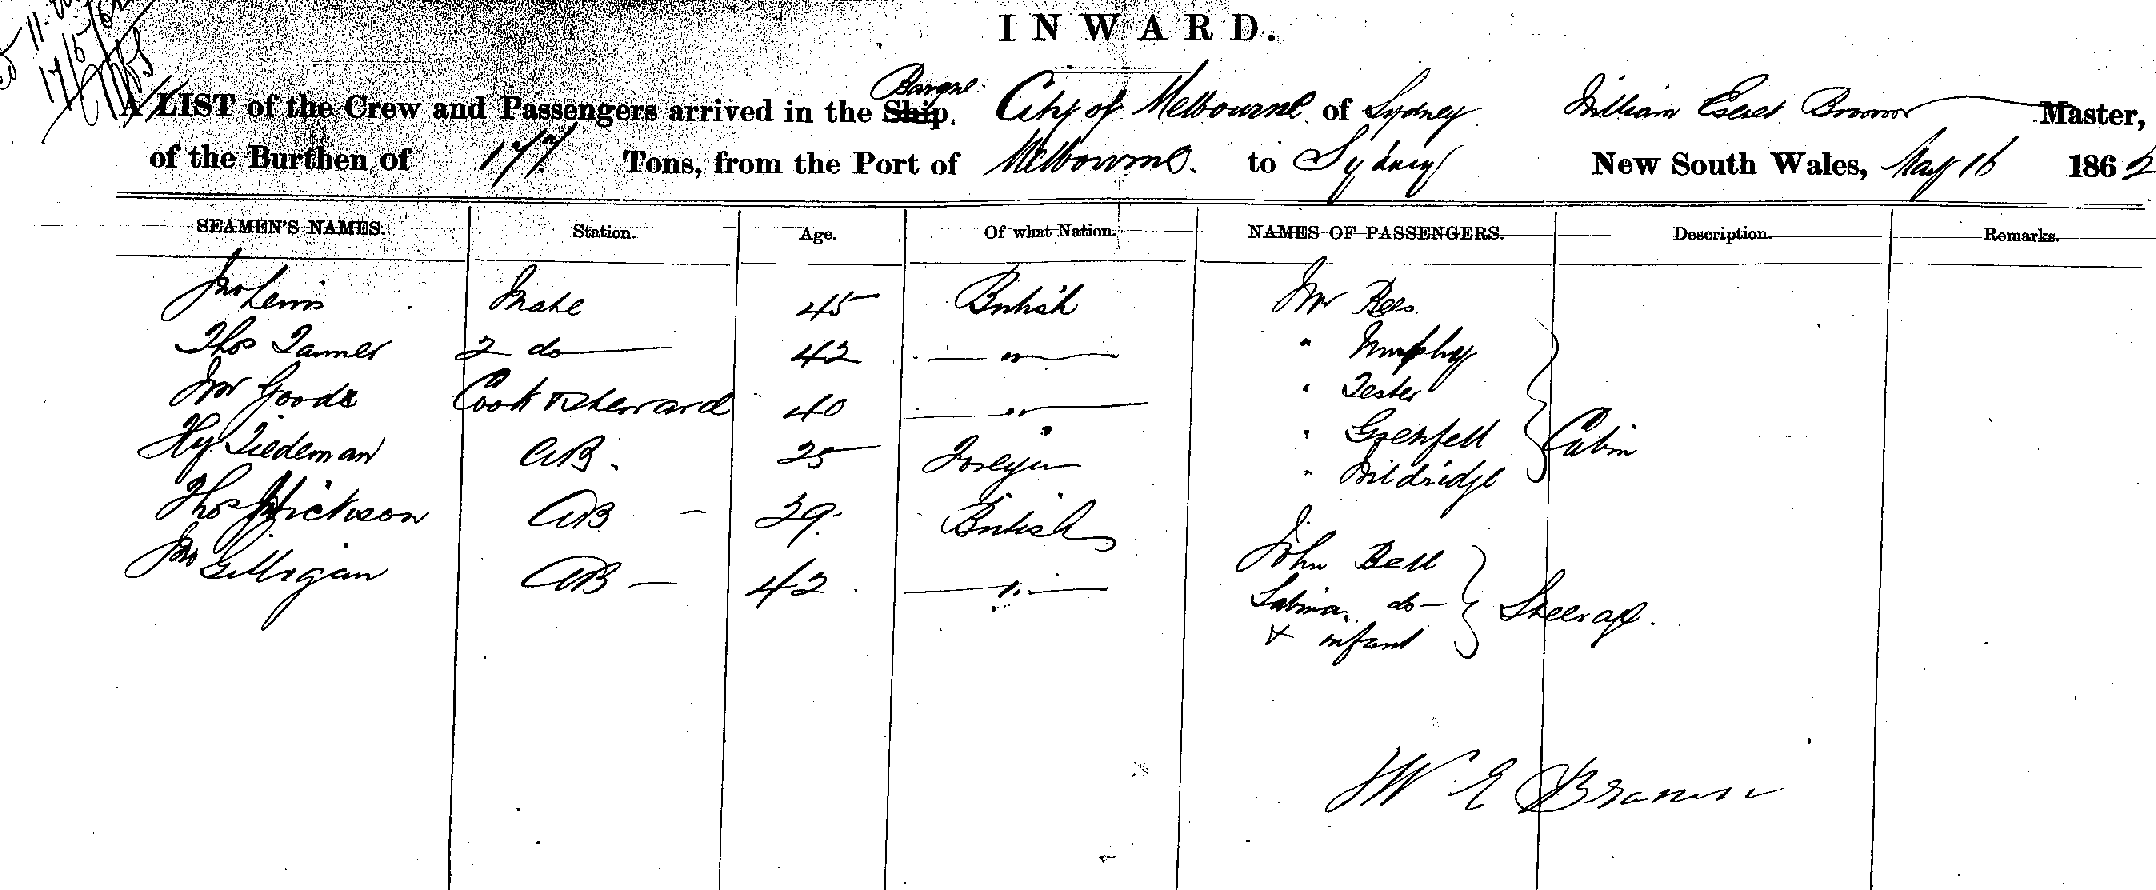 INWARD.
Barque
A LIST of the Crew and Passengers arrived in the Ship. City of Melbourne of Sydney William Master,
of the Burthen of 177 Tons, from the Port of Melbourne. to Sydney New South Wales, May 16 1862
SEAMEN'S NAMES. Station. Age. Of what Nation. NAMES OF PASSENGERS. Description. Remarks.
Jno Lewis Mate 45 British Mr Rees
Thos Tanner 2 do 42 " " Murphy
Wm Goode Cook & Steward 40 " " Tester
Hy Tiedeman AB. 25 Foreign " Grenfell Cabin
" Mildridge
Thos Hickson AB 29. British
Jno Gilligan AB 42 " John Bell
Sabina do Steerage.
& infant
W E Brown